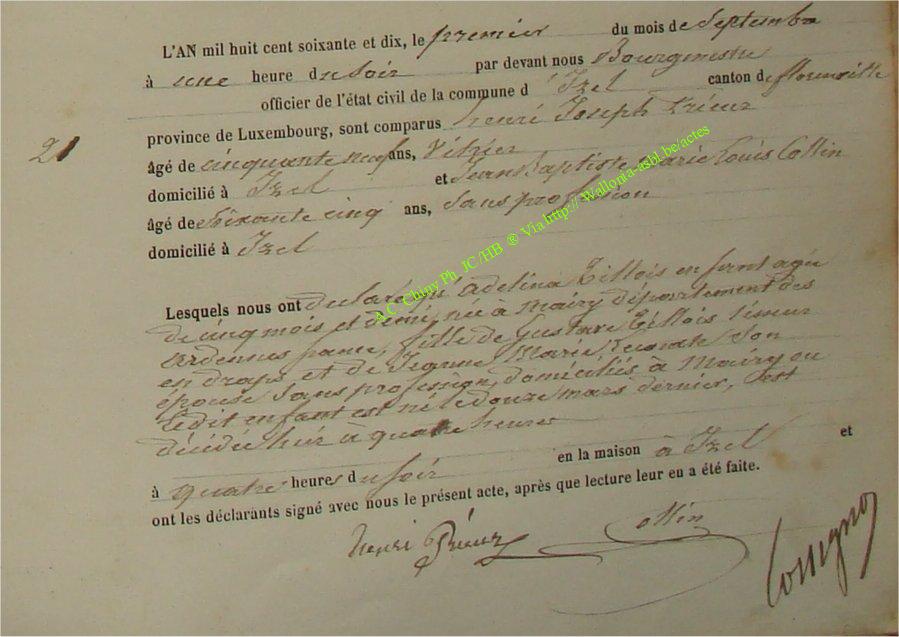 L'AN mil huit cent soixante et dix, le premier du mois de Septembre
à une heure du Soir par devant nous Bourgmestre
officier de l'état civil de la commune d'Izel canton de florenville
province de Luxembourg, sont comparus henri Joseph Prieur
21
âgé de cinquante neuf ans,
domicilié à Izel et Jean Baptiste Marie Louis Collin
âgé de Soixante cinq ans, Sans profession
domicilié à Izel
A.C. Chiny Ph. JC/HB ® Via http:// Wallonia-asbl.be/actes
Lesquels nous ont déclaré qu' Adelina Tillois enfant agée
de cinq mois et demi, née à Mairy département des
Ardennes france, fille de Gustave Tillois
en draps et de Jeanne Marie son
épouse Sans profession, domiciliés à Mairy ou
ledit enfant est né le douze mars dernier, est
décédée hier à quatre heures
à quatre heures du soir en la maison à Izel et
ont les déclarants signé avec nous le présent acte, après que lecture leur en a été faite.
henri Prieur Collin